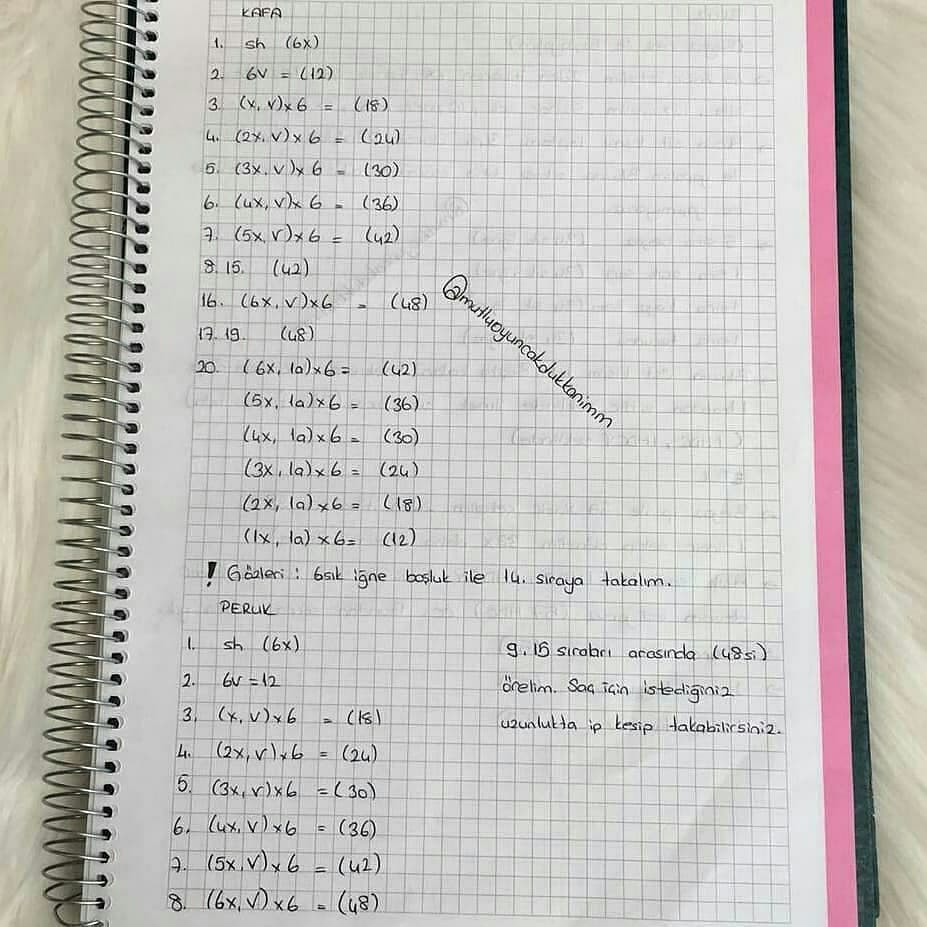 KAFA
1. sh (6x)
2. 6v = (12)
3. (x, v)x6 = (18)
4. (2x, v)x6 = (24)
5. (3x, v)x6 = (30)
6. (4x, v)x6 = (36)
7. (5x, v)x6 = (42)
8.15. (42)
16. (6x, v)x6 = (48)
17.19. (48)
20. (6x, 1a)x6 = (42)
(5x, 1a)x6 = (36)
(4x, 1a)x6 = (30)
(3x, 1a)x6 = (24)
(2x, 1a)x6 = (18)
(1x, 1a)x6= (12)
@mutluoyuncakdukkanimm
! Gözleri : 6sık iğne boşluk ile 14. sıraya takalım.
PERUK
1. sh (6x)
2. 6v = 12
3. (x, v)x6 = (18)
4. (2x, v)x6 = (24)
5. (3x, v)x6 = (30)
6. (4x, v)x6 = (36)
7. (5x, v)x6 = (42)
8. (6x, v)x6 = (48)
9. 15 sıraları arasında (48si)
örelim. Saç için istediğiniz
uzunlukta ip kesip takabilirsiniz.